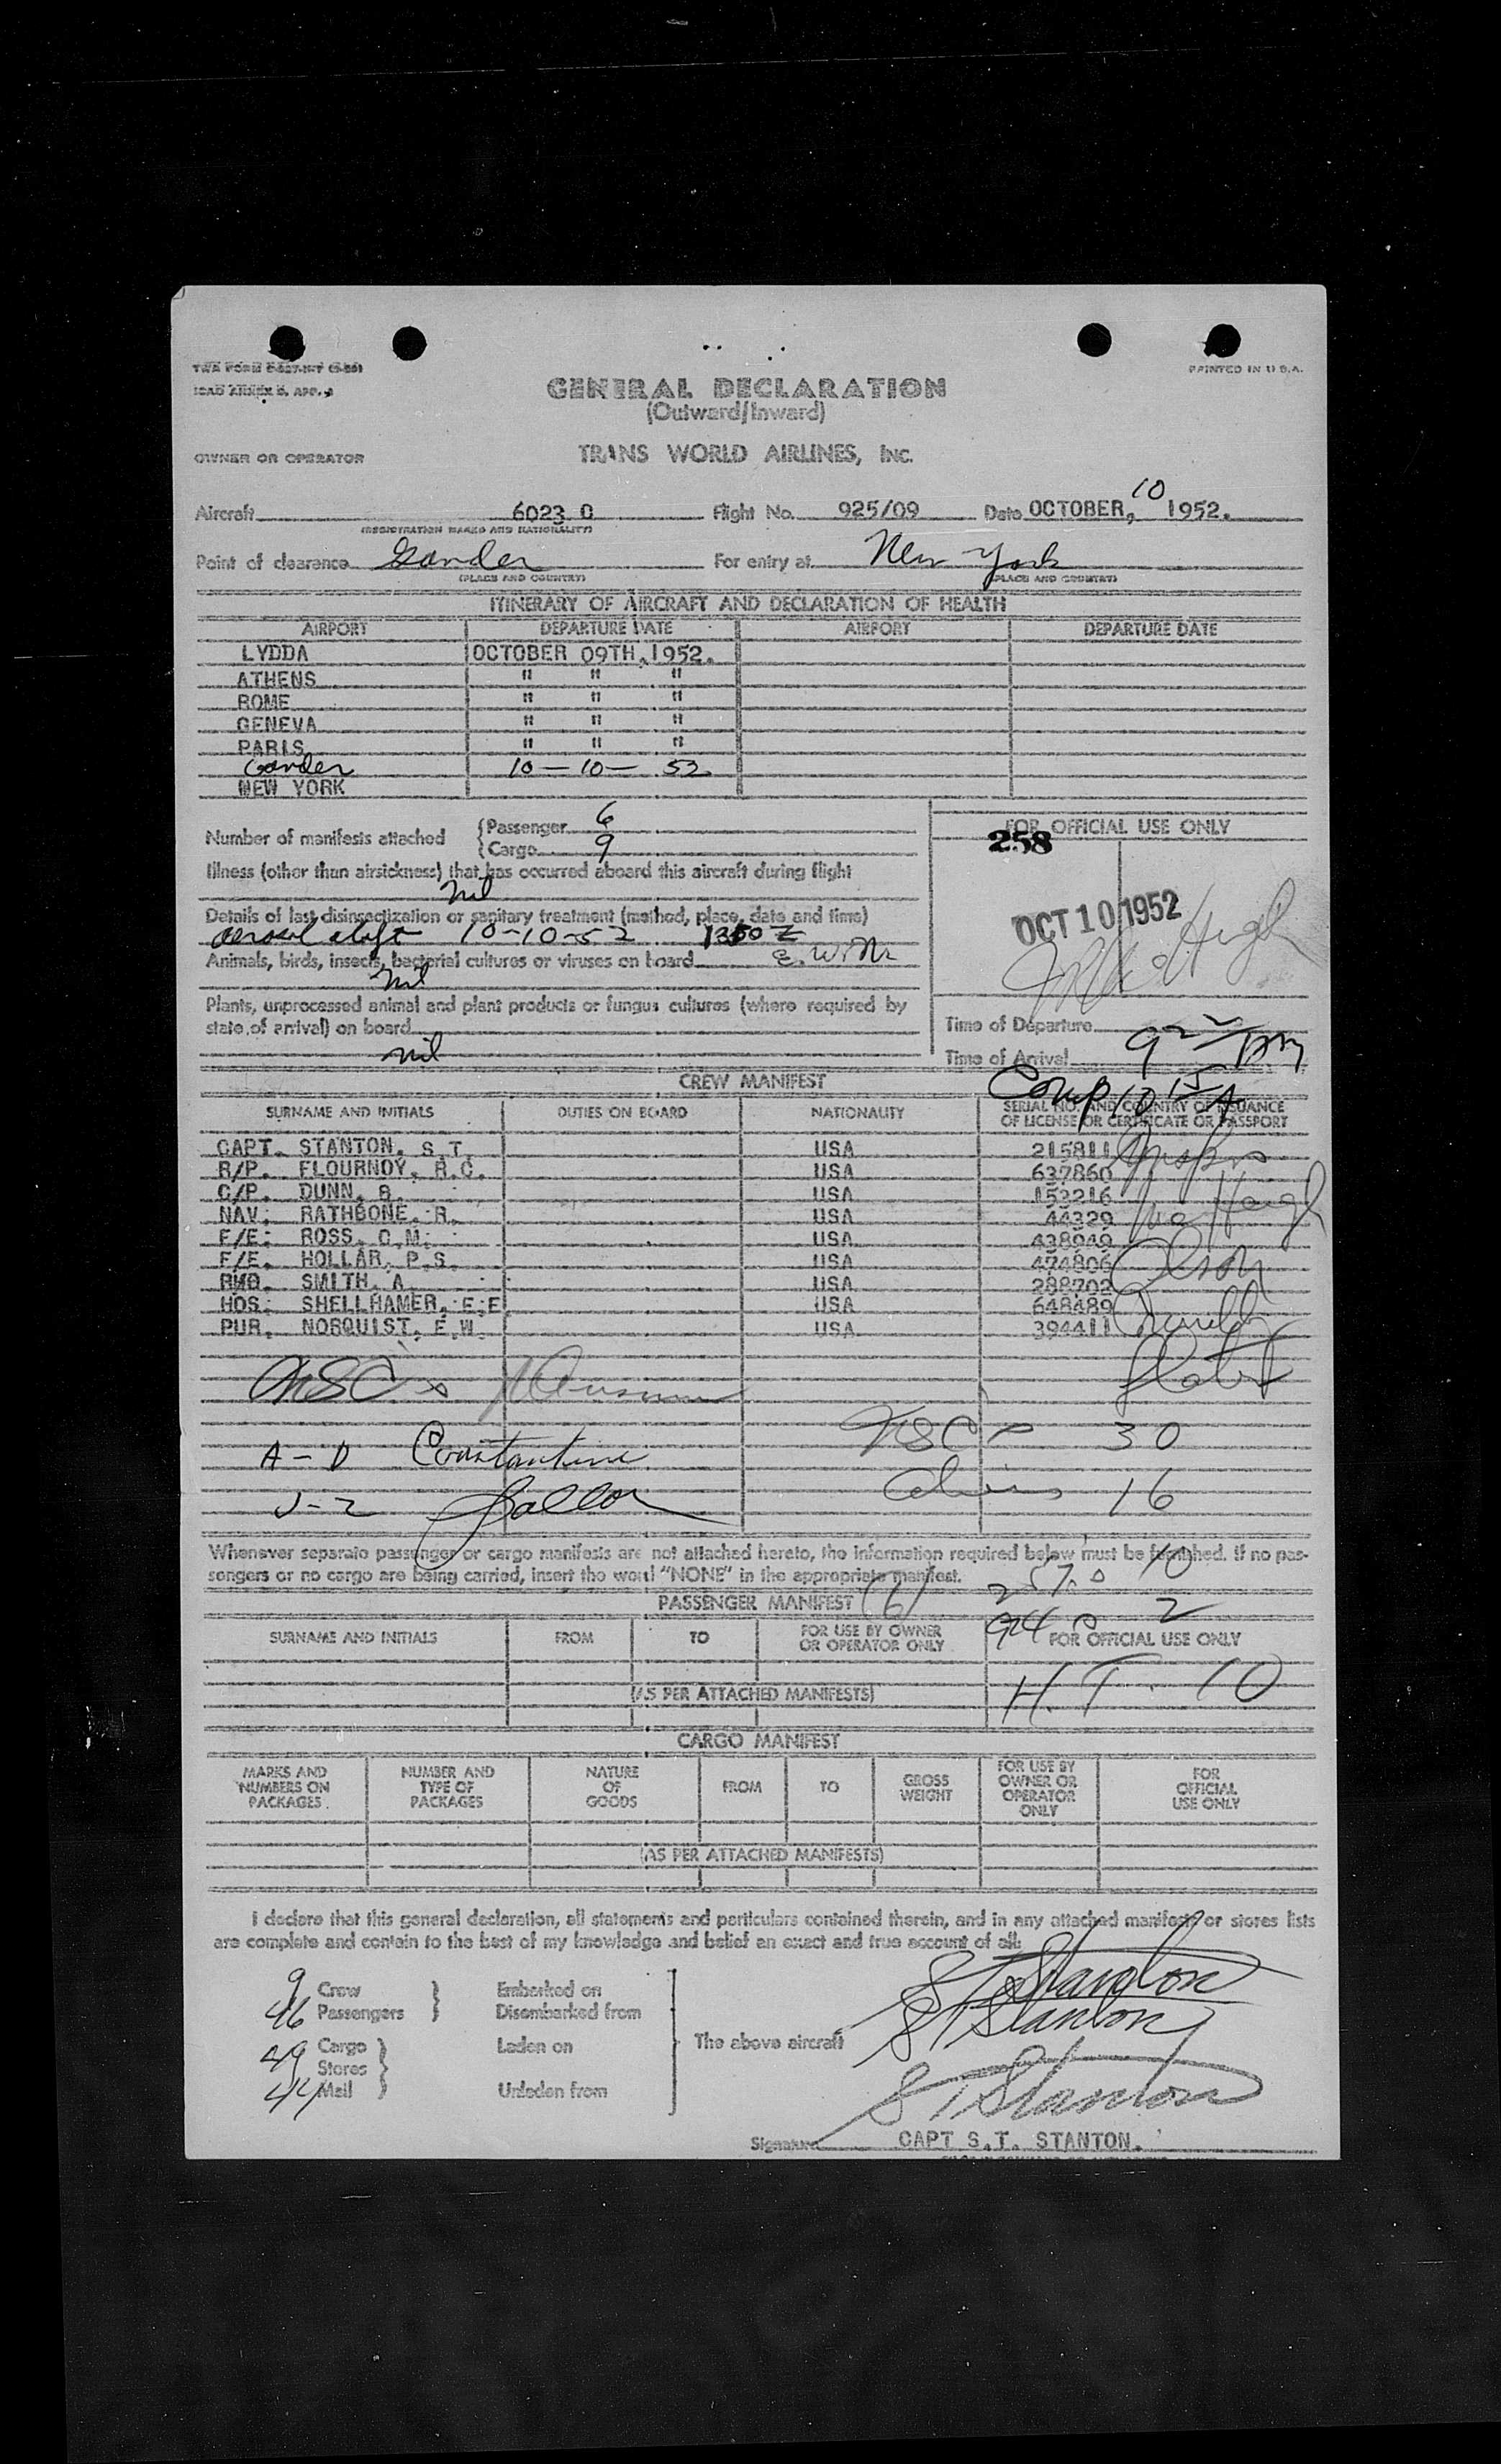 TWA FORM
ICAO ANNEX 9, APP.
PRINTED IN U.S.A.
GENERAL DECLARATION
(Outward/Inward)
OWNER OR OPERATOR
TRANS WORLD AIRLINES, INC.
Aircraft 6023 C Flight No. 925/09 Date OCTOBER, 10 1952.
(REGISTRATION MARKS AND NATIONALITY)
Point of clearance Gander For entry at New York
(PLACE AND COUNTRY) (PLACE AND COUNTRY)
ITINERARY OF AIRCRAFT AND DECLARATION OF HEALTH
AIRPORT DEPARTURE DATE AIRPORT DEPARTURE DATE
LYDDA OCTOBER 09TH, 1952.
ATHENS " " "
ROME " " "
GENEVA " " "
PARIS " " "
Gander 10-10-52
NEW YORK
Number of manifests attached {Passenger 6
{Cargo 9
FOR OFFICIAL USE ONLY
258
OCT 10 1952
Illness (other than airsickness) that has occurred aboard this aircraft during flight
nil
Details of last disinsectization or sanitary treatment (method, place, date and time)
aerosol aloft 10-10-52
Animals, birds, insects, bacterial cultures or viruses on board
nil
Plants, unprocessed animal and plant products or fungus cultures (where required by
state of arrival) on board
nil
Time of Departure
Time of Arrival
CREW MANIFEST
SURNAME AND INITIALS DUTIES ON BOARD NATIONALITY SERIAL NO. AND COUNTRY OF ISSUANCE
OF LICENSE OR CERTIFICATE OR PASSPORT
CAPT. STANTON, S.T. USA 215811
R/P. FLOURNOY, R.C. USA 637860
C/P. DUNN, B. USA 153216
NAV: RATHBONE, R. USA 44329
F/E: ROSS, C.M. USA 438949
F/E. HOLLAR, P.S. USA 474806
SMITH, A. USA 288702
HOS: SHELLHAMER, E.E. USA 648489
PUR. NORQUIST, E.W. USA 394411
30
A-D Constantine
16
Whenever separate passenger or cargo manifests are not attached hereto, the information required below must be furnished. If no pas-
sengers or no cargo are being carried, insert the word "NONE" in the appropriate manifest.
10
PASSENGER MANIFEST (6)
2
SURNAME AND INITIALS FROM TO FOR USE BY OWNER
OR OPERATOR ONLY FOR OFFICIAL USE ONLY
H.T. 10
(AS PER ATTACHED MANIFESTS)
CARGO MANIFEST
MARKS AND
NUMBERS ON
PACKAGES NUMBER AND
TYPE OF
PACKAGES NATURE
OF
GOODS FROM TO GROSS
WEIGHT FOR USE BY
OWNER OR
OPERATOR
ONLY FOR
OFFICIAL
USE ONLY
(AS PER ATTACHED MANIFESTS)
I declare that this general declaration, all statements and particulars contained therein, and in any attached manifests or stores lists
are complete and contain to the best of my knowledge and belief an exact and true account of all:
9 Crew } Embarked on
46 Passengers } Disembarked from
S T Stanton
S T Stanton
Cargo } Laden on The above aircraft
Stores
Mail } Unladen from
S T Stanton
Signature CAPT S.T. STANTON.